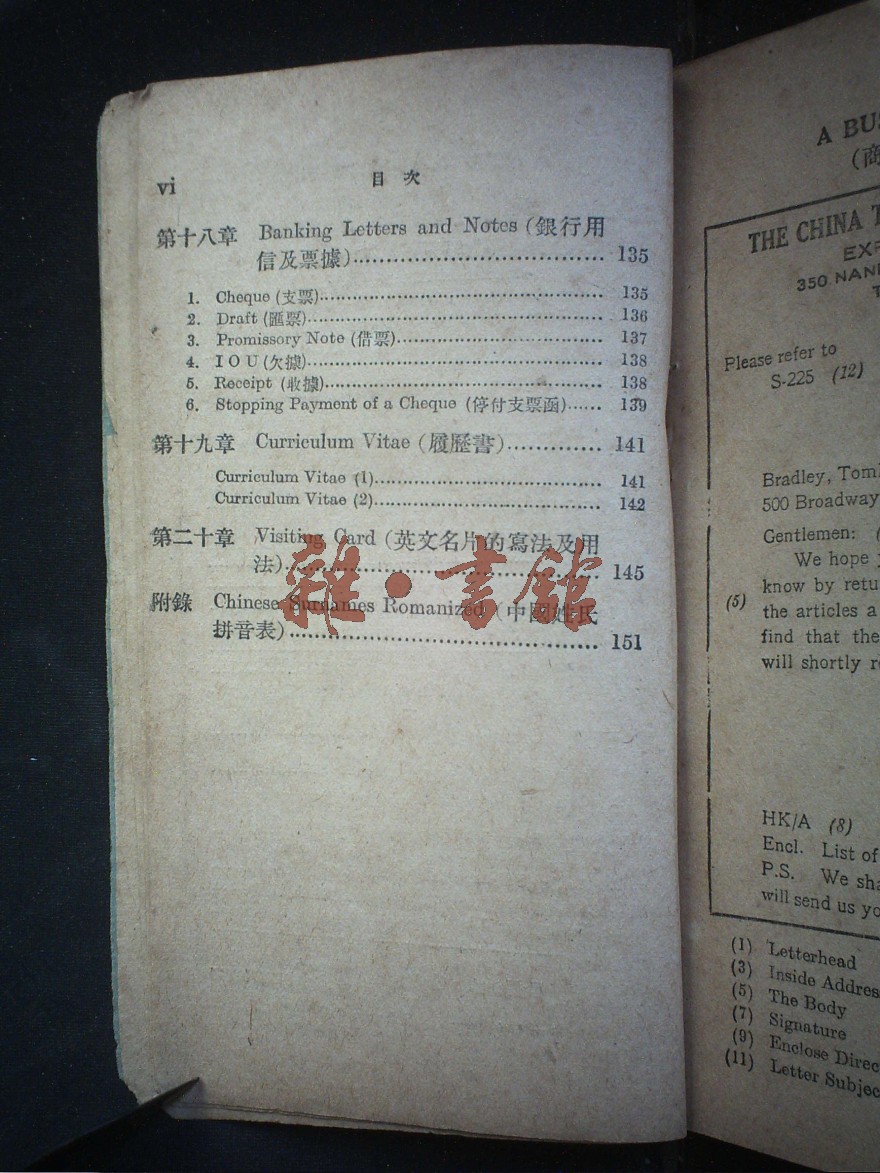 vi 目次
第十八章 Banking Letters and Notes (銀行用
信及票據)……………………………… 135
1. Cheque (支票)……………………………… 135
2. Draft (匯票)……………………………… 136
3. Promissory Note (借票)……………………………… 137
4. I O U (欠據)……………………………… 138
5. Receipt (收據)……………………………… 138
6. Stopping Payment of a Cheque (停付支票函)…… 139
第十九章 Curriculum Vitae (履歷書)…………… 141
Curriculum Vitae (1)……………………………… 141
Curriculum Vitae (2)……………………………… 142
第二十章 Visiting Card (英文名片的寫法及用
法)……………………………… 145
附錄 Chinese Surnames Romanized (中國姓氏
拼音表)……………………………… 151
雜·書館
A BUS
(商
THE CHINA T
EXP
350 NAN
T
Please refer to
S-225 (12)
Bradley, Toml
500 Broadway
Gentlemen: (
We hope
know by retu
(5) the articles a
find that the
will shortly r
HK/A (8)
Encl. List of
P.S. We sha
will send us yo
(1) Letterhead
(3) Inside Addres
(5) The Body
(7) Signature
(9) Enclose Direc
(11) Letter Subjec